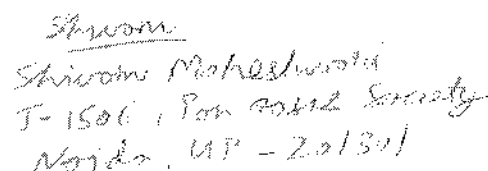 Shivam
Shivam Maheshwari
T-1506, Pan Society
Noida, UP - 201301